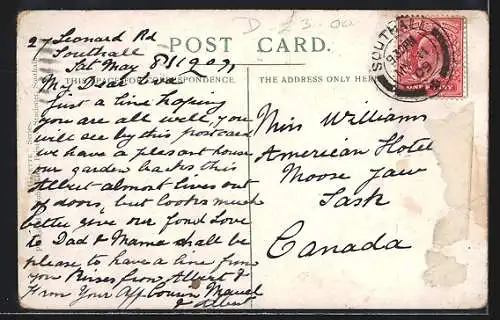 D £3.00
27 Leonard Rd
Southall
Sat May 8th 1909,
POST CARD.
THIS SPACE FOR
THE ADDRESS ONLY HERE
SOUTHALL
ONE PENNY
My Dear
Just a line hoping
you are all well, you
will see by this postcard
we have a pleasant house
our garden backs this
Albert almost lives out
of doors, but looks much
better give our fond Love
to Dad & Mama shall be
please to have a line from
you Kisses from Albert &
From Your Aff Cousin
& Albert
Miss Williams
American Hotel
Moose Jaw
Sask
Canada